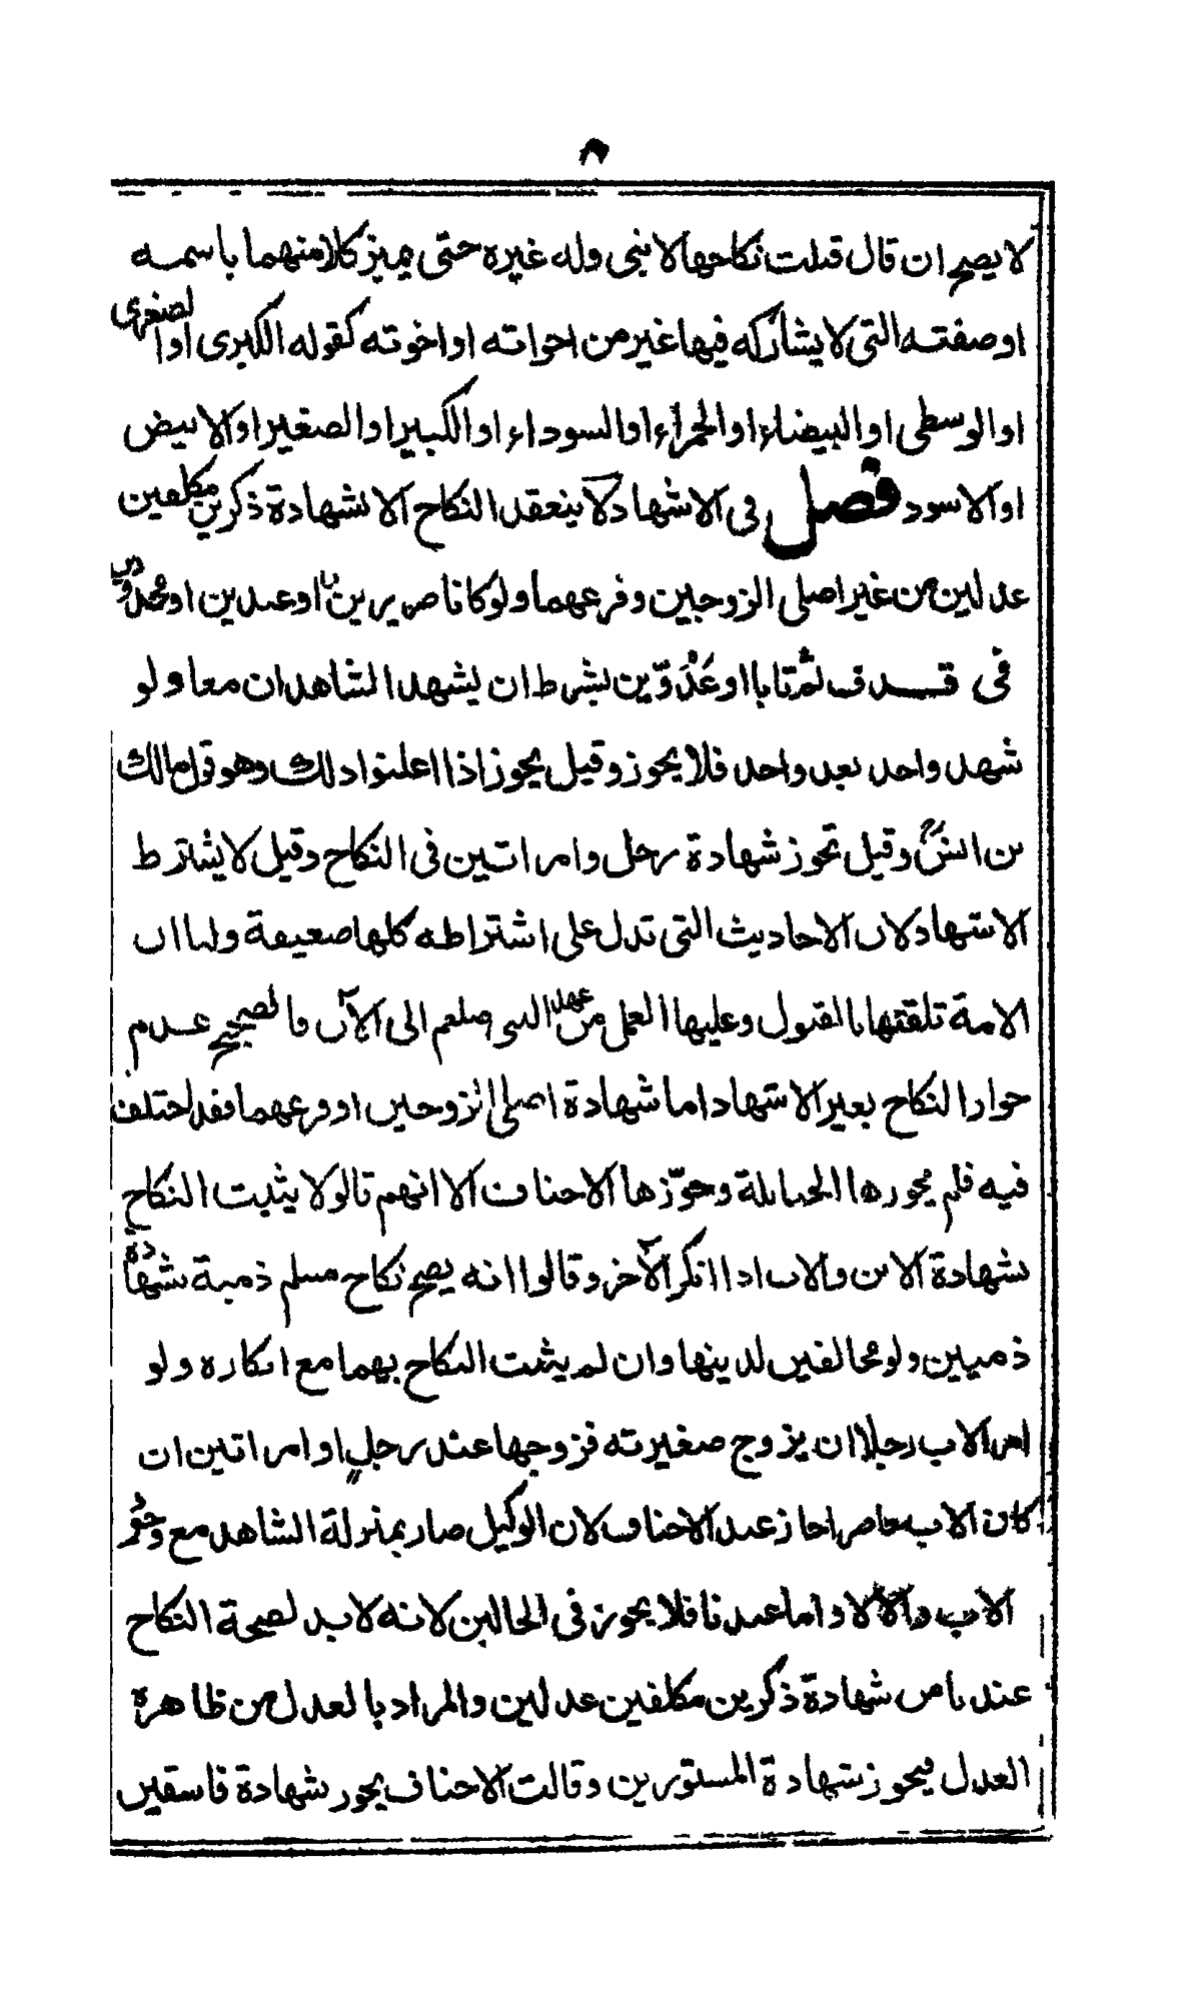 ٨
لا يصح ان قال قبلت نكاحها لابنی وله غيره حتى يميز كلا منهما باسمه
او صفته التی لا يشاركه فيها غير من اخواته او اخوته كقوله الكبرى او الصغری
او الوسطی او البيضاء او الحمراء او السوداء او الكبير او الصغير او الابيض
او الاسود فصل فی الاشهاد لا ينعقد النكاح الا بشهادة ذكرين مكلفين
عدلين من غير اصلی الزوجين وفرعهما ولو كانا ضريرين او عبدين او محدودين
فی قذف ثم تابا او عدوّين بشرط ان يشهد الشاهدان معا ولو
شهد واحد بعد واحد فلا يجوز وقيل يجوز اذا اعلنوا ذلك وهو قول مالك
بن انس وقيل تجوز شهادة رجل وامراتين فی النكاح وقيل لا يشترط
الاشهاد لان الاحاديث التی تدل على اشتراطه كلها ضعيفة ولنا ان
الامة تلقتها بالقبول وعليها العمل من عهد النبی صلعم الى الآن فالصحيح عدم
جواز النكاح بغير الاشهاد اما شهادة اصلی الزوجين او فرعهما فقد اختلف
فيه فلم يجوزها الحنابلة وجوّزها الاحناف الا انهم قالوا لا يثبت النكاح
بشهادة الابن والاب اذا انكر الآخر وقالوا انه يصح نكاح مسلم ذمية بشهادة
ذميين ولو مخالفين لدينها وان لم يثبت النكاح بهما مع انكاره ولو
امر الاب رجلا ان يزوج صغيرته فزوجها عند رجل او امراتين ان
كان الاب حاضرا جاز عند الاحناف لان الوكيل صار بمنزلة الشاهد مع وجود
الاب والا لا واما عندنا فلا يجوز فی الحالين لانه لا بد لصحة النكاح
عندنا من شهادة ذكرين مكلفين عدلين والمراد بالعدل من ظاهره
العدل فيجوز شهادة المستورين وقالت الاحناف يجوز شهادة فاسقين